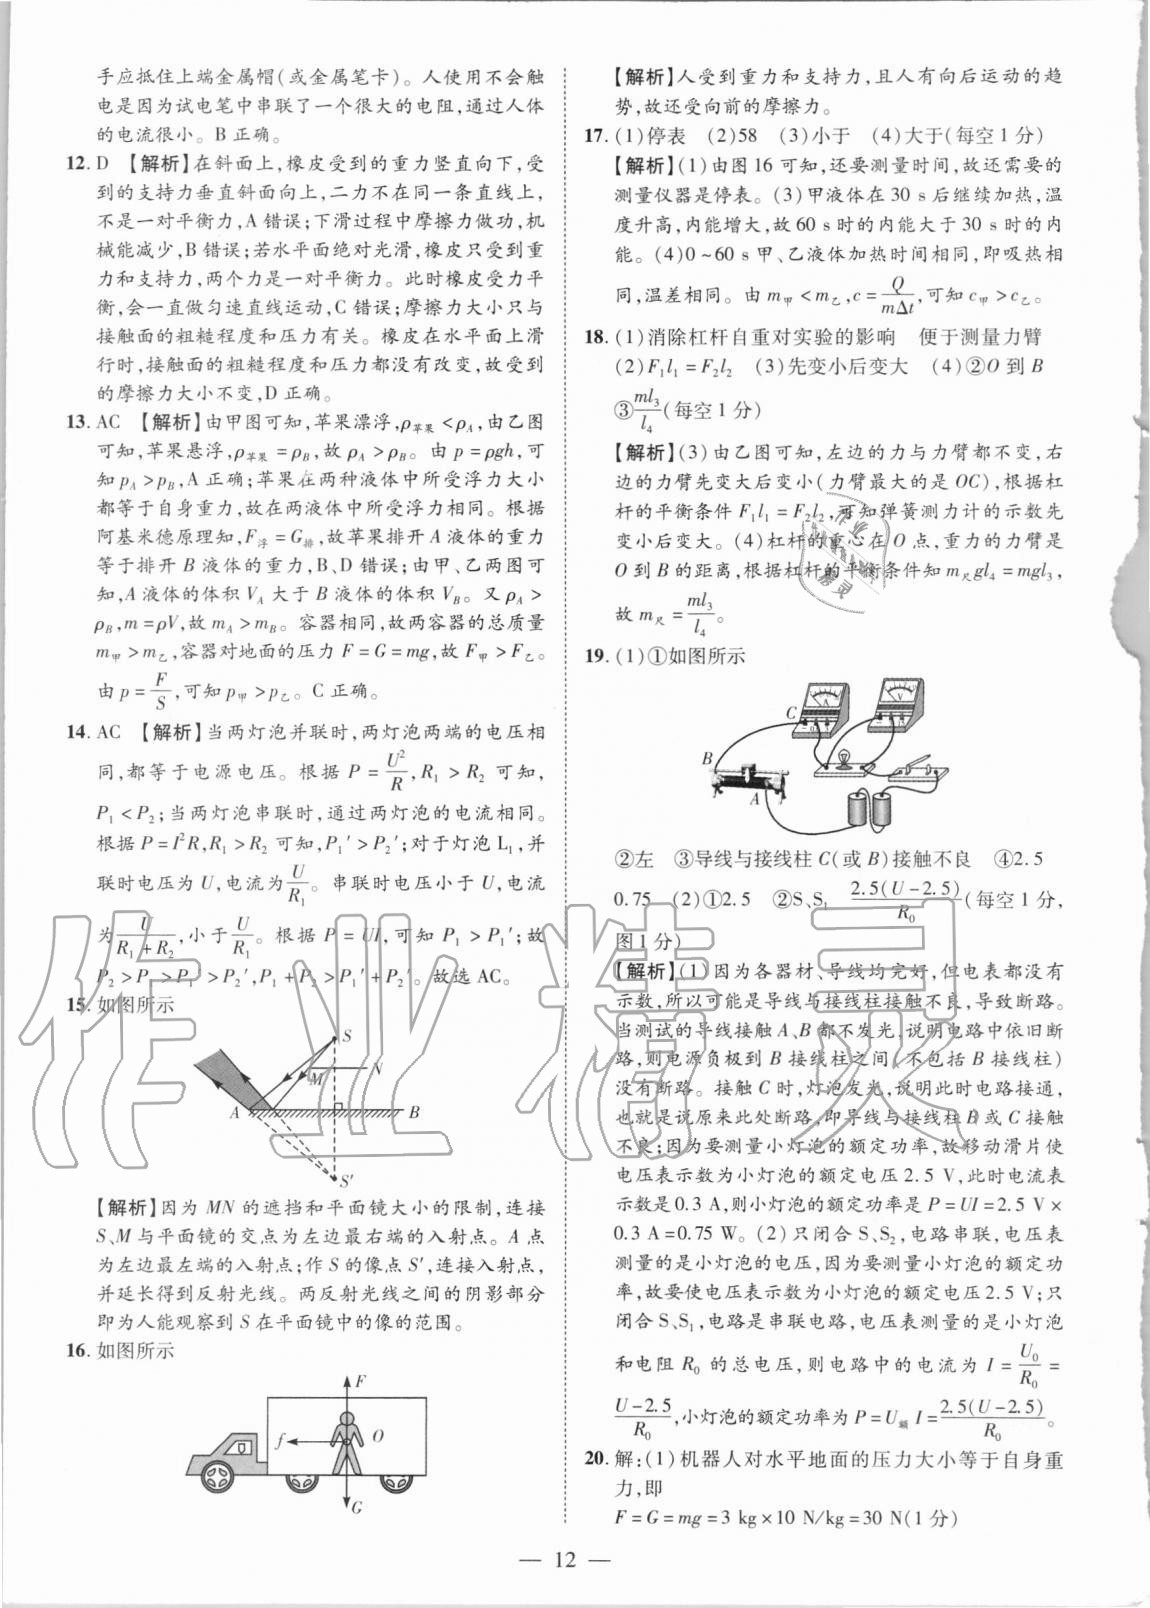 手应抵住上端金属帽(或金属笔卡)。人使用不会触
电是因为试电笔中串联了一个很大的电阻,通过人体
的电流很小。B 正确。
12. D 【解析】在斜面上,橡皮受到的重力竖直向下,受
到的支持力垂直斜面向上,二力不在同一条直线上,
不是一对平衡力,A 错误;下滑过程中摩擦力做功,机
械能减少,B 错误;若水平面绝对光滑,橡皮只受到重
力和支持力,两个力是一对平衡力。此时橡皮受力平
衡,会一直做匀速直线运动,C 错误;摩擦力大小只与
接触面的粗糙程度和压力有关。橡皮在水平面上滑
行时,接触面的粗糙程度和压力都没有改变,故受到
的摩擦力大小不变,D 正确。
13. AC 【解析】由甲图可知,苹果漂浮,ρ苹果<ρA,由乙图
可知,苹果悬浮,ρ苹果=ρB,故 ρA>ρB。由 p=ρgh,可
知 pA>pB,A 正确;苹果在两种液体中所受浮力大小
都等于自身重力,故在两液体中所受浮力相同。根据
阿基米德原理知,F浮=G排,故苹果排开 A 液体的重力
等于排开 B 液体的重力,B、D 错误;由甲、乙两图可
知,A 液体的体积 VA 大于 B 液体的体积 VB。又 ρA>
ρB,m=ρV,故 mA>mB。容器相同,故两容器的总质量
m甲>m乙,容器对地面的压力 F=G=mg,故 F甲>F乙。
由 p=F/S,可知 p甲>p乙。C 正确。
14. AC 【解析】当两灯泡并联时,两灯泡两端的电压相
同,都等于电源电压。根据 P=U²/R,R1>R2 可知,
P1<P2;当两灯泡串联时,通过两灯泡的电流相同。
根据 P=I²R,R1>R2 可知,P1′>P2′;对于灯泡 L1,并
联时电压为 U,电流为 U/R1。串联时电压小于 U,电流
为 U/(R1+R2),小于 U/R1。根据 P=UI,可知 P1>P1′;故
P2>P1>P1′>P2′,P1+P2>P1′+P2′。故选 AC。
15. 如图所示
S
M N
A B
S′
【解析】因为 MN 的遮挡和平面镜大小的限制,连接
S、M 与平面镜的交点为左边最右端的入射点。A 点
为左边最左端的入射点;作 S 的像点 S′,连接入射点,
并延长得到反射光线。两反射光线之间的阴影部分
即为人能观察到 S 在平面镜中的像的范围。
16. 如图所示
F
f O
G
【解析】人受到重力和支持力,且人有向后运动的趋
势,故还受向前的摩擦力。
17. (1)停表 (2)58 (3)小于 (4)大于(每空 1 分)
【解析】(1)由图 16 可知,还要测量时间,故还需要的
测量仪器是停表。(3)甲液体在 30 s 后继续加热,温
度升高,内能增大,故 60 s 时的内能大于 30 s 时的内
能。(4)0~60 s 甲、乙液体加热时间相同,即吸热相
同,温差相同。由 m甲<m乙,c=Q/(mΔt),可知 c甲>c乙。
18. (1)消除杠杆自重对实验的影响 便于测量力臂
(2)F1l1=F2l2 (3)先变小后变大 (4)②O 到 B
③ml3/l4(每空 1 分)
【解析】(3)由乙图可知,左边的力与力臂都不变,右
边的力臂先变大后变小(力臂最大的是 OC),根据杠
杆的平衡条件 F1l1=F2l2,可知弹簧测力计的示数先
变小后变大。(4)杠杆的重心在 O 点,重力的力臂是
O 到 B 的距离,根据杠杆的平衡条件知 m尺gl4=mgl3,
故 m尺=ml3/l4。
19. (1)①如图所示
C
A
V
B
A
②左 ③导线与接线柱 C(或 B)接触不良 ④2.5
0.75 (2)①2.5 ②S、S1 2.5(U-2.5)/R0(每空 1 分,
图 1 分)
【解析】(1)因为各器材、导线均完好,但电表都没有
示数,所以可能是导线与接线柱接触不良,导致断路。
当测试的导线接触 A、B 都不发光,说明电路中依旧断
路,则电源负极到 B 接线柱之间(不包括 B 接线柱)
没有断路。接触 C 时,灯泡发光,说明此时电路接通,
也就是说原来此处断路,即导线与接线柱 B 或 C 接触
不良;因为要测量小灯泡的额定功率,故移动滑片使
电压表示数为小灯泡的额定电压 2.5 V,此时电流表
示数是 0.3 A,则小灯泡的额定功率是 P=UI=2.5 V×
0.3 A=0.75 W。(2)只闭合 S、S2,电路串联,电压表
测量的是小灯泡的电压,因为要测量小灯泡的额定功
率,故要使电压表示数为小灯泡的额定电压 2.5 V;只
闭合 S、S1,电路是串联电路,电压表测量的是小灯泡
和电阻 R0 的总电压,则电路中的电流为 I=U0/R0=
(U-2.5)/R0,小灯泡的额定功率为 P=U额 I=2.5(U-2.5)/R0。
20. 解:(1)机器人对水平地面的压力大小等于自身重
力,即
F=G=mg=3 kg×10 N/kg=30 N(1 分)
— 12 —
作业精灵